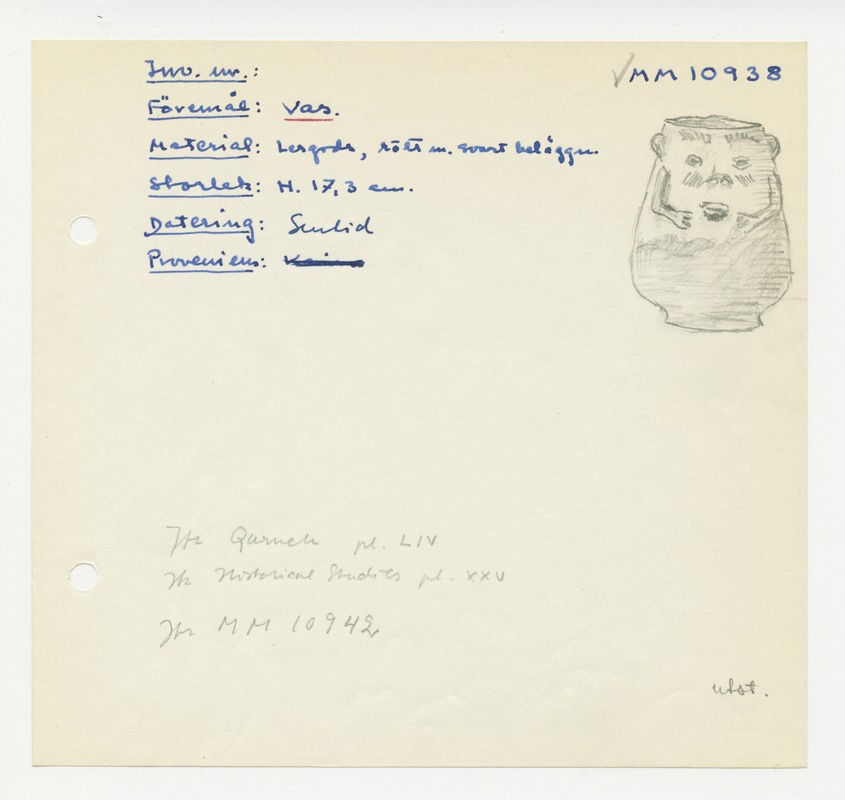 Inv. nr.:
✓MM 10938
Föremål: Vas.
Material: Lergods, rött m. svart beläggn.
Storlek: H. 17,3 cm.
Datering: Sentid
Proveniens:
Jfr Qurneh pl. LIV
Jfr Historical Studies pl. XXV
Jfr MM 10942
utst.